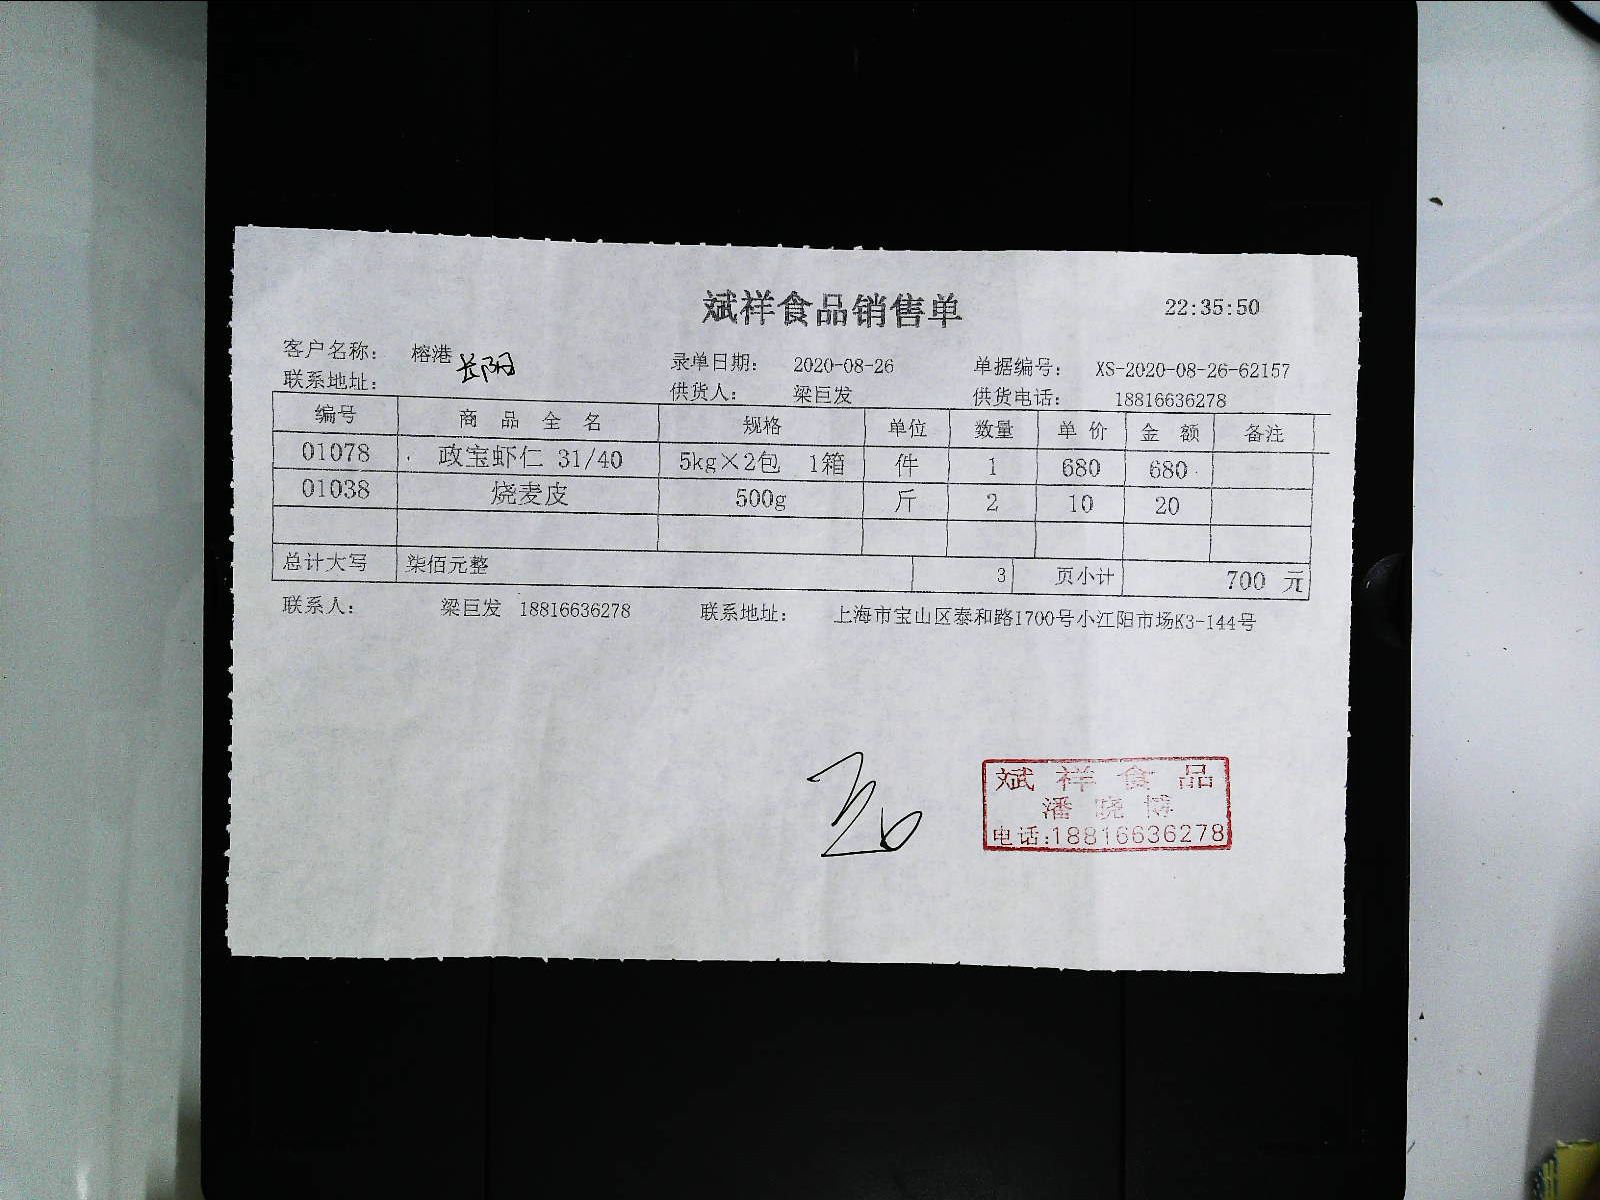 斌祥食品销售单 22:35:50
客户名称： 榕港 长阳 录单日期： 2020-08-26 单据编号： XS-2020-08-26-62157
联系地址： 供货人： 梁巨发 供货电话： 18816636278
编号 商品全名 规格 单位 数量 单价 金额 备注
01078 政宝虾仁 31/40 5kg×2包 1箱 件 1 680 680
01038 烧麦皮 500g 斤 2 10 20
总计大写 柒佰元整 3 页小计 700 元
联系人： 梁巨发 18816636278 联系地址： 上海市宝山区泰和路1700号小江阳市场K3-144号
斌祥食品
潘晓博
电话:18816636278